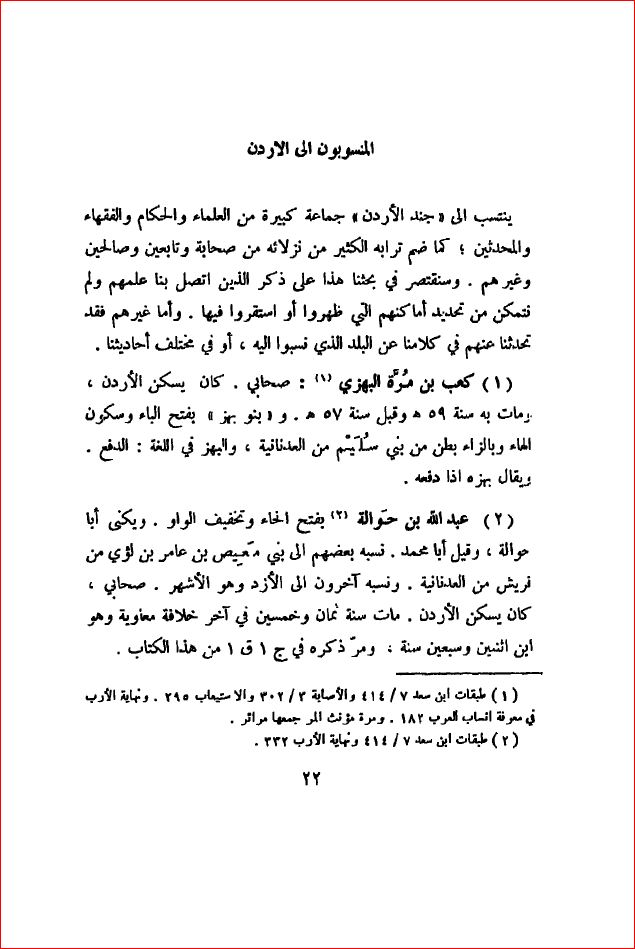 المنسوبون الى الاردن
ينتسب الى «جند الأردن» جماعة كبيرة من العلماء والحكام والفقهاء
والمحدثين ؛ كما ضم ترابه الكثير من نزلائه من صحابة وتابعين وصالحين
وغيرهم . وسنقتصر في بحثنا هذا على ذكر الذين اتصل بنا علمهم ولم
نتمكن من تحديد أماكنهم التي ظهروا أو استقروا فيها . وأما غيرهم فقد
تحدثنا عنهم في كلامنا عن البلد الذي نسبوا اليه ، أو في مختلف أحاديثنا .
(١) كعب بن مُرَّة البهزي (١) : صحابي . كان يسكن الأردن ،
ومات به سنة ٥٩ ه وقبل سنة ٥٧ ه . و «بنو بهز» بفتح الباء وسكون
الهاء وبالزاء بطن من بني سُلَيْم من العدنانية ، والبهز في اللغة : الدفع .
ويقال بهزه اذا دفعه .
(٢) عبد الله بن حَوالة (٢) بفتح الحاء وتخفيف الواو . ويكنى أبا
حوالة ، وقيل أبا محمد . نسبه بعضهم الى بني مَعِيص بن عامر بن لؤي من
قريش من العدنانية . ونسبه آخرون الى الأزد وهو الأشهر . صحابي ،
كان يسكن الأردن . مات سنة ثمان وخمسين في آخر خلافة معاوية وهو
ابن اثنين وسبعين سنة ؛ ومرّ ذكره في ج ١ ق ١ من هذا الكتاب .
(١) طبقات ابن سعد ٧ / ٤١٤ والأصابة ٣ / ٣٠٢ والاستيعاب ٢٩٥ . ونهاية الأرب
في معرفة انساب العرب ١٨٢ . ومرة مؤنث المر جمعها مرائر .
(٢) طبقات ابن سعد ٧ / ٤١٤ ونهاية الأرب ٣٣٢ .
٢٢